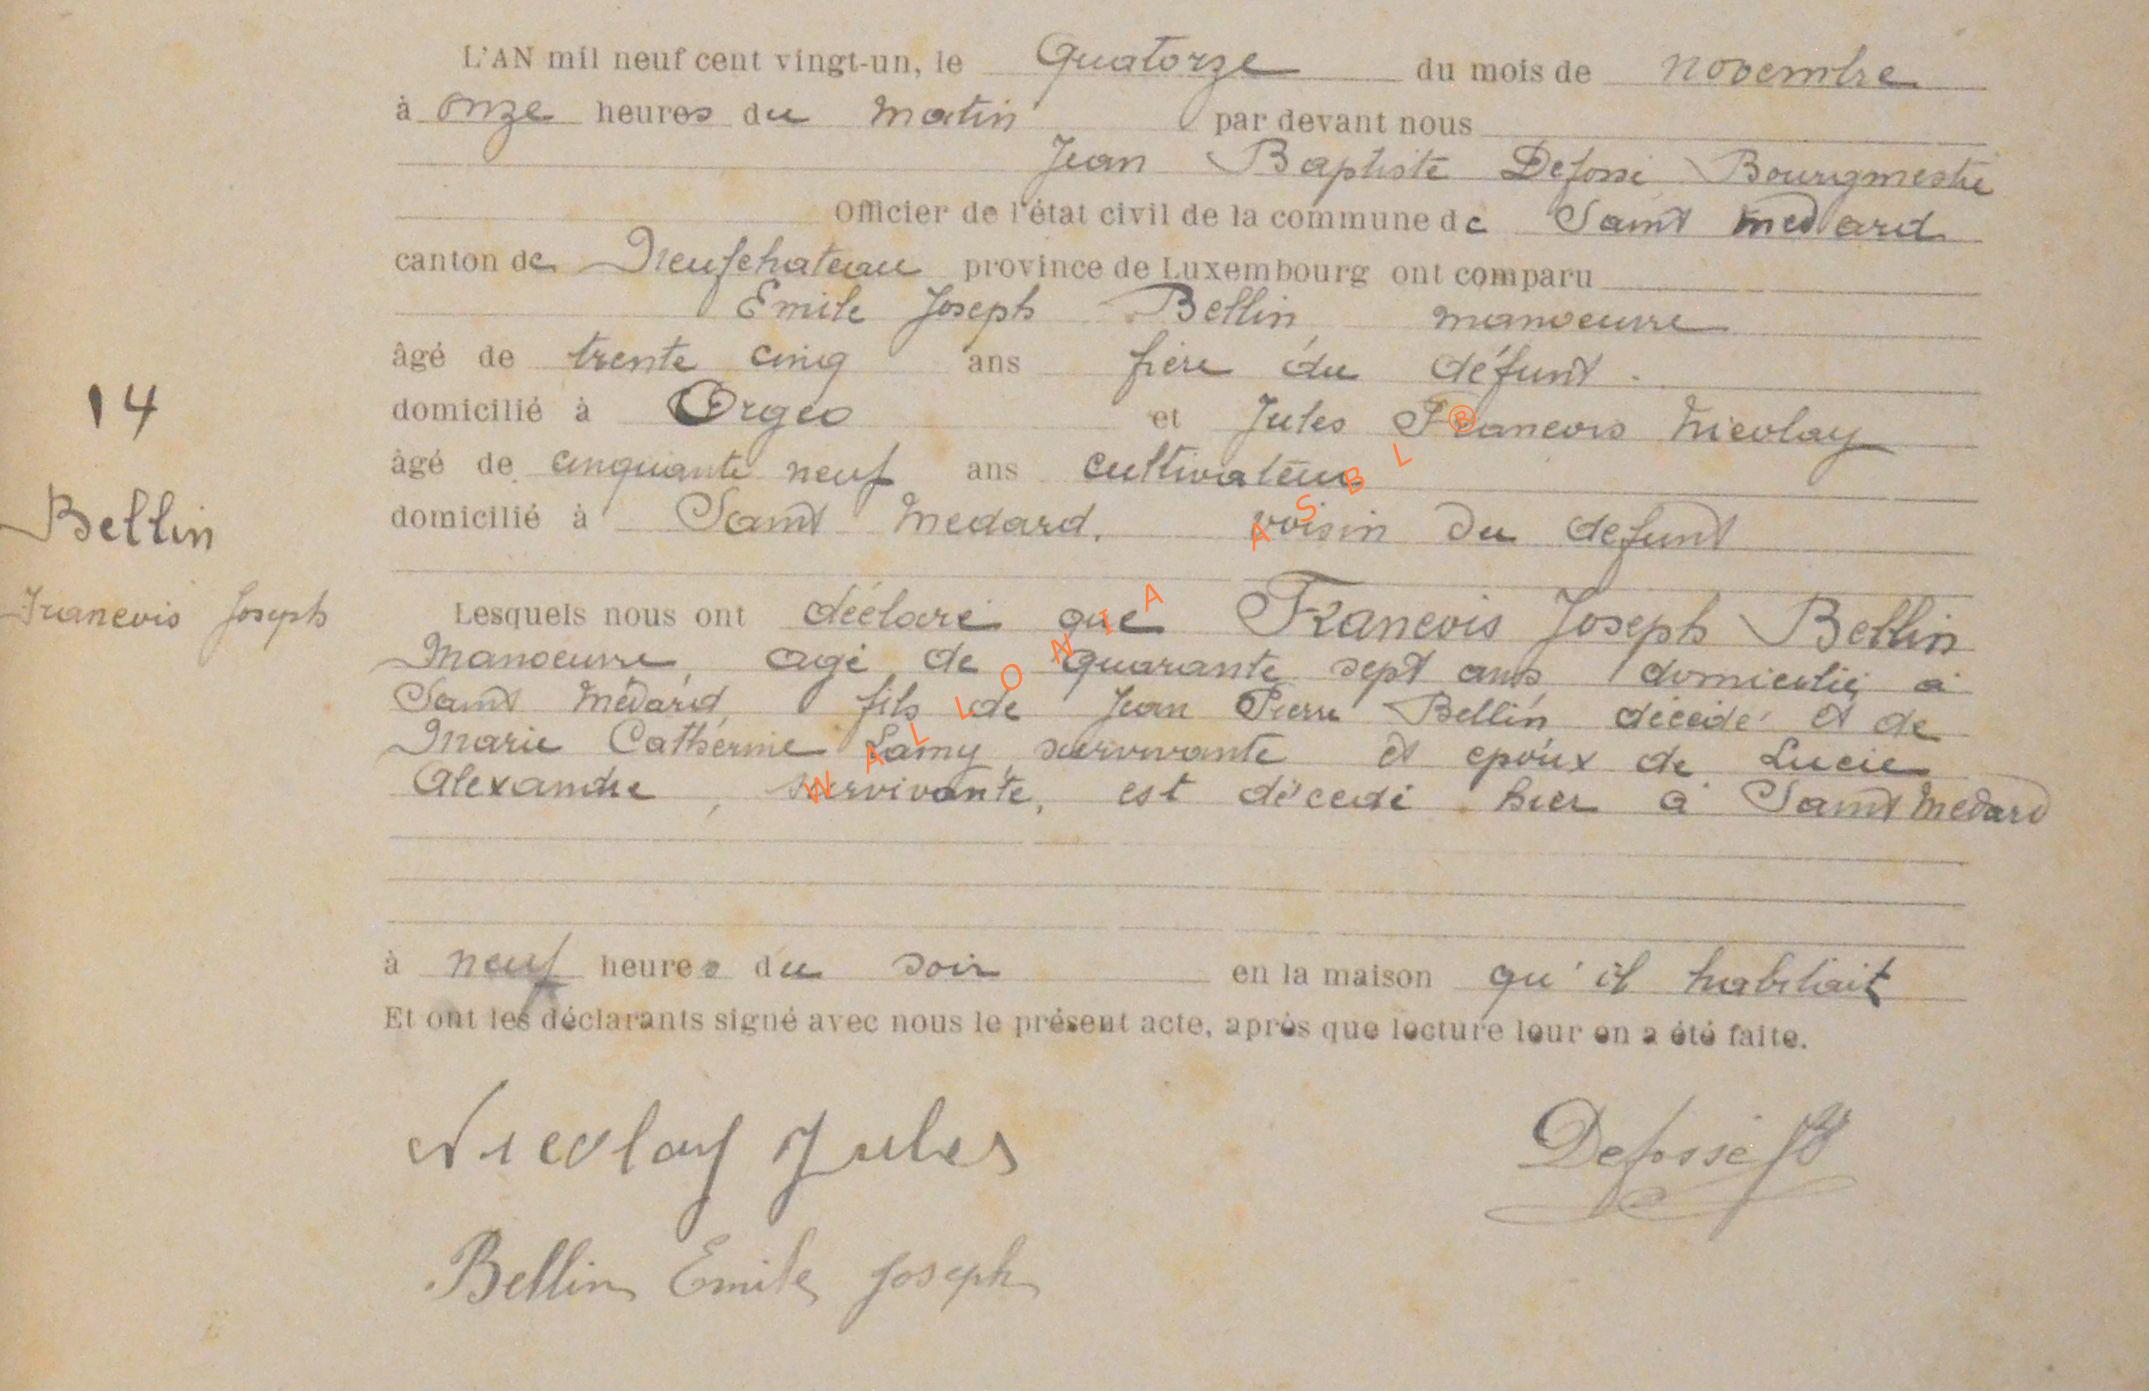 L'AN mil neuf cent vingt-un, le Quatorze du mois de novembre
à onze heures du matin par devant nous
Jean Baptiste Defossé Bourgmestre
Officier de l'état civil de la commune de Saint Medard
canton de Neufchateau province de Luxembourg ont comparu
Emile Joseph Bellin manoeuvre
âgé de trente cinq ans frère du défunt.
domicilié à Orgeo et Jules Francois Nicolay
âgé de cinquante neuf ans cultivateur
domicilié à Saint Medard. voisin du defunt
14
Bellin
Francois Joseph
Lesquels nous ont déclaré que Francois Joseph Bellin
Manoeuvre, agé de quarante sept ans, domicilié à
Saint Médard, fils de Jean Pierre Bellin, décédé et de
Marie Catherine Lamy, survivante et epoux de Lucie
Alexandre, survivante, est décédé hier à Saint Medard
à neuf heures du soir en la maison qu'il habitait
Et ont les déclarants signé avec nous le présent acte, après que lecture leur en a été faite.
Nicolay Jules
Defossé JB
Bellin Emile Joseph
WALLONIA ASBL ®